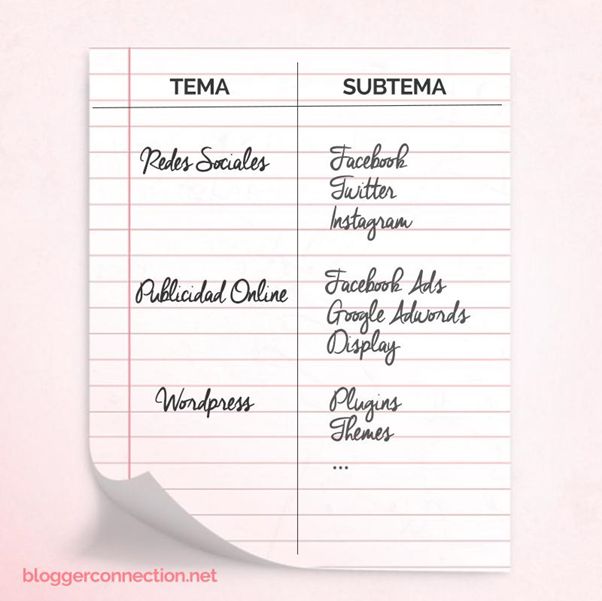 TEMA SUBTEMA
Redes Sociales Facebook
Twitter
Instagram
Publicidad Online Facebook Ads
Google Adwords
Display
Wordpress Plugins
Themes
...
bloggerconnection.net